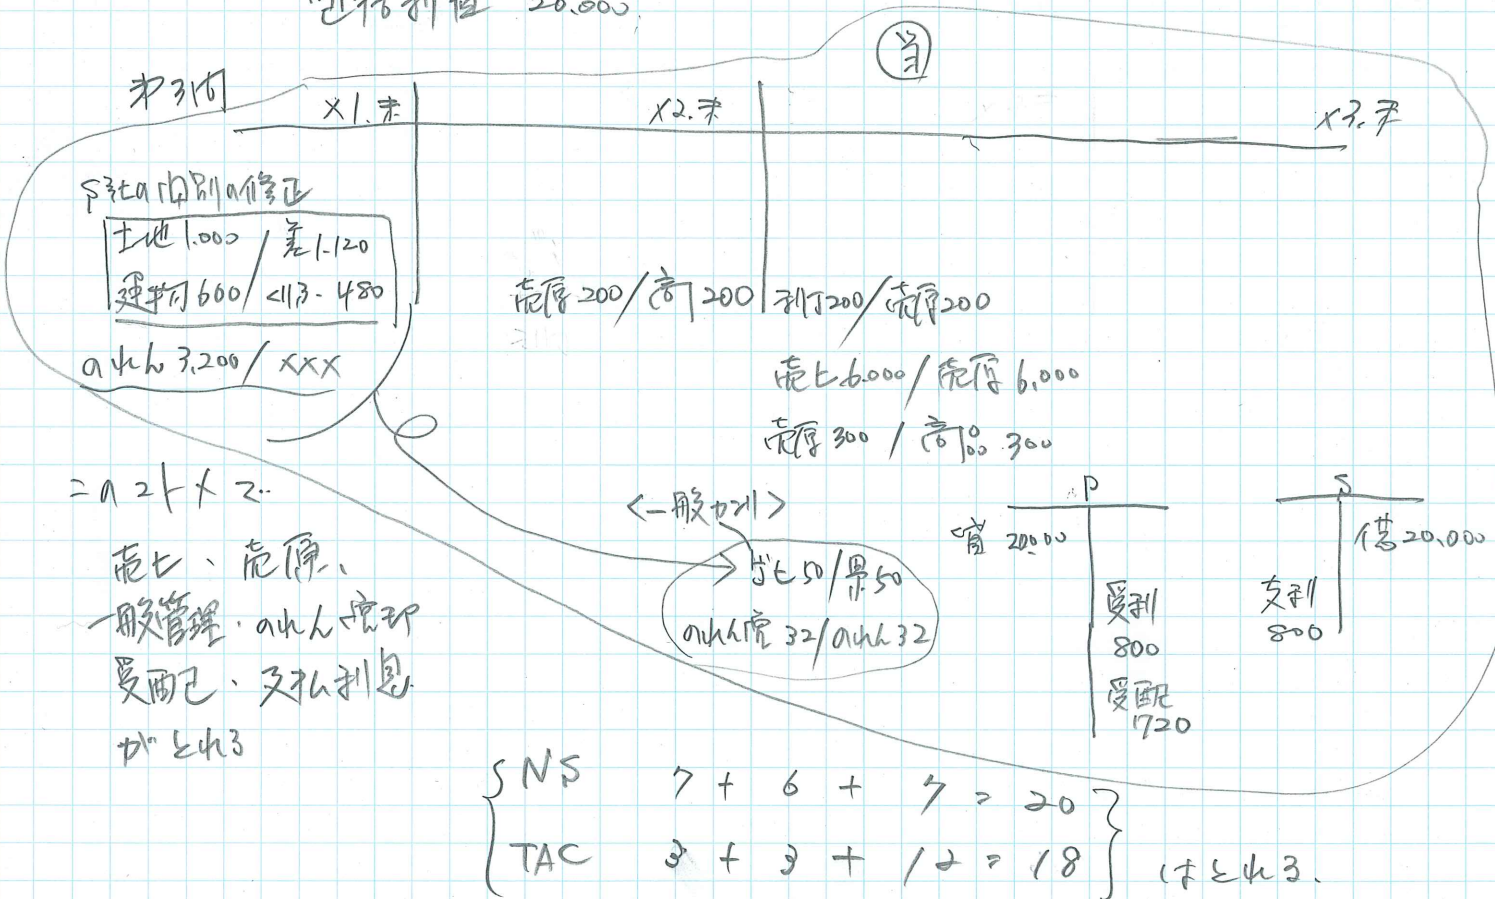 包括利益 20.000
当
第3問
X1.末
X2.末
X3.末
S社の個別の修正
土地1.000 / 差1.120
建物600 / くりの.480
のれん 3,200 / XXX
売原200 / 商200
利丁200 / 売原200
売上6.000 / 売原6,000
売原300 / 商品300
=のストメで..
売上、売原、
一般管理.のれん償却
受配、支払利息
がとれる
<一般かんり>
50 / 累50
のれん償 32 / のれん32
P
貸 20.000
受利
800
受配
720
S
借 20,000
支利
800
NS 7 + 6 + 7 = 20
TAC 3 + 3 + 12 = 18
はとれる、